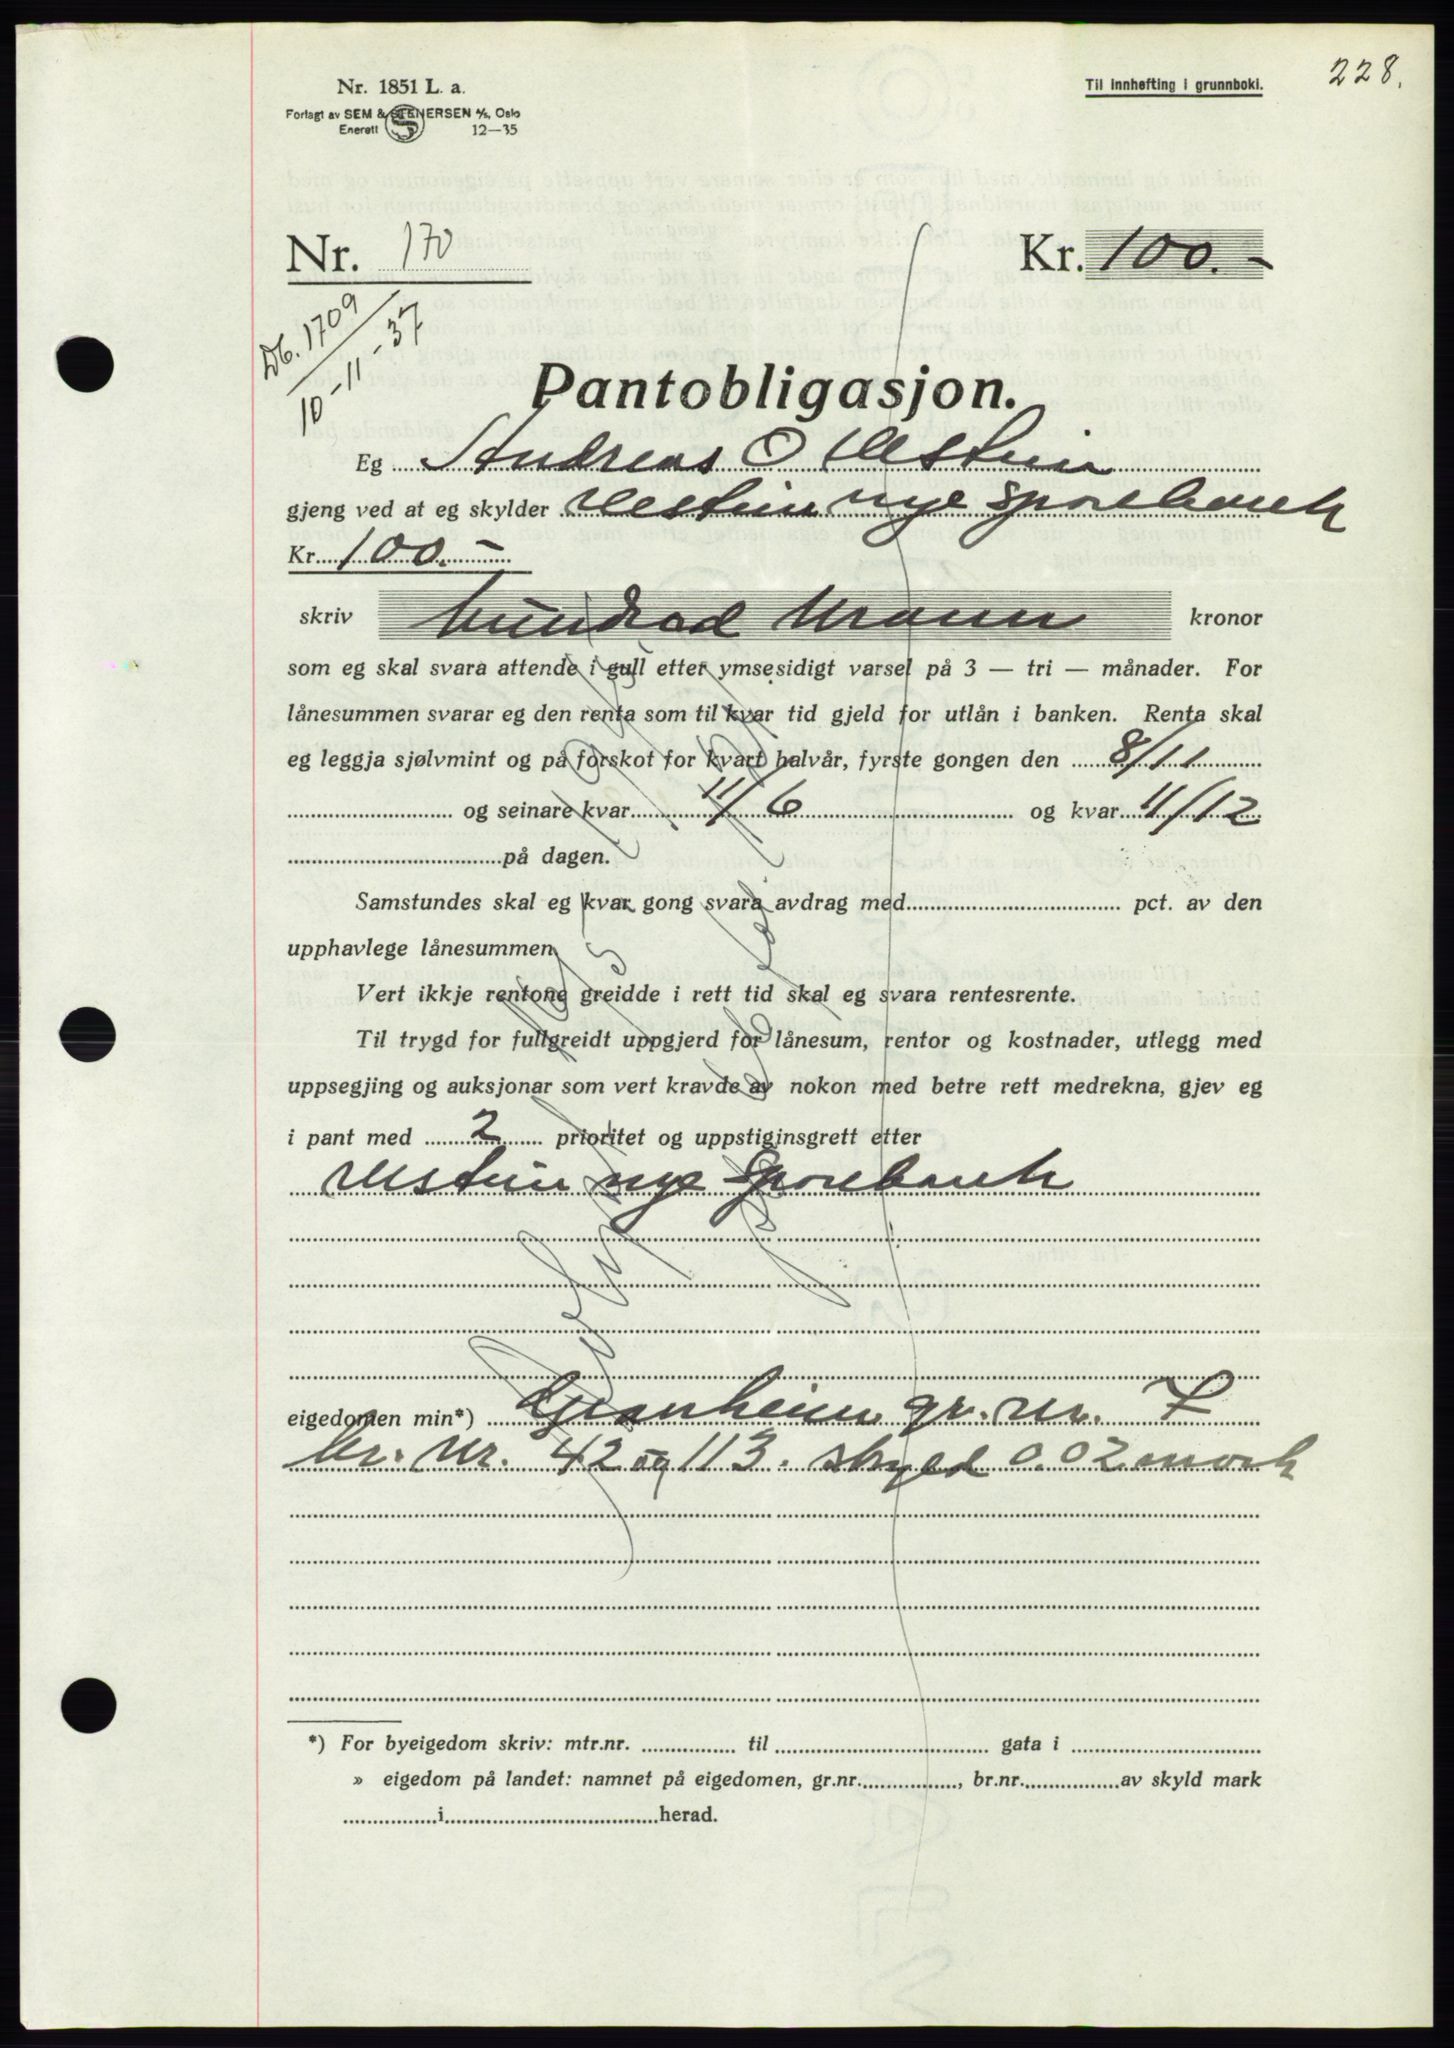 228.
Nr. 1851 L. a.
Til innhefting i grunnboki.
Forlagt av SEM & STENERSEN A/S, Oslo
Enerett 12—35
Nr. 170
Kr. 100.-
Db. 1709
10-11-37
Pantobligasjon.
Eg Andreas O Ulstein
gjeng ved at eg skylder Ulstein nye Sparebank
Kr 100.-
skriv hundrad kronor
som eg skal svara attende i gull etter ymsesidigt varsel på 3 — tri — månader. For
lånesummen svarar eg den renta som til kvar tid gjeld for utlån i banken. Renta skal
eg leggja sjølvmint og på forskot for kvart halvår, fyrste gongen den 8/11
og seinare kvar 11/6 og kvar 11/12
på dagen.
Samstundes skal eg kvar gong svara avdrag med pct. av den
upphavlege lånesummen
Vert ikkje rentone greidde i rett tid skal eg svara rentesrente.
Til trygd for fullgreidt uppgjerd for lånesum, rentor og kostnader, utlegg med
uppsegjing og auksjonar som vert kravde av nokon med betre rett medrekna, gjev eg
i pant med 2 prioritet og uppstiginsgrett etter
Ulstein nye Sparebank
eigedomen min*) Granheim gr. nr. 7
br. nr. 42 og 113. skyld 0.02 mark
*) For byeigedom skriv: mtr.nr. til gata i
» eigedom på landet: namnet på eigedomen, gr.nr. , br.nr. av skyld mark
i herad.